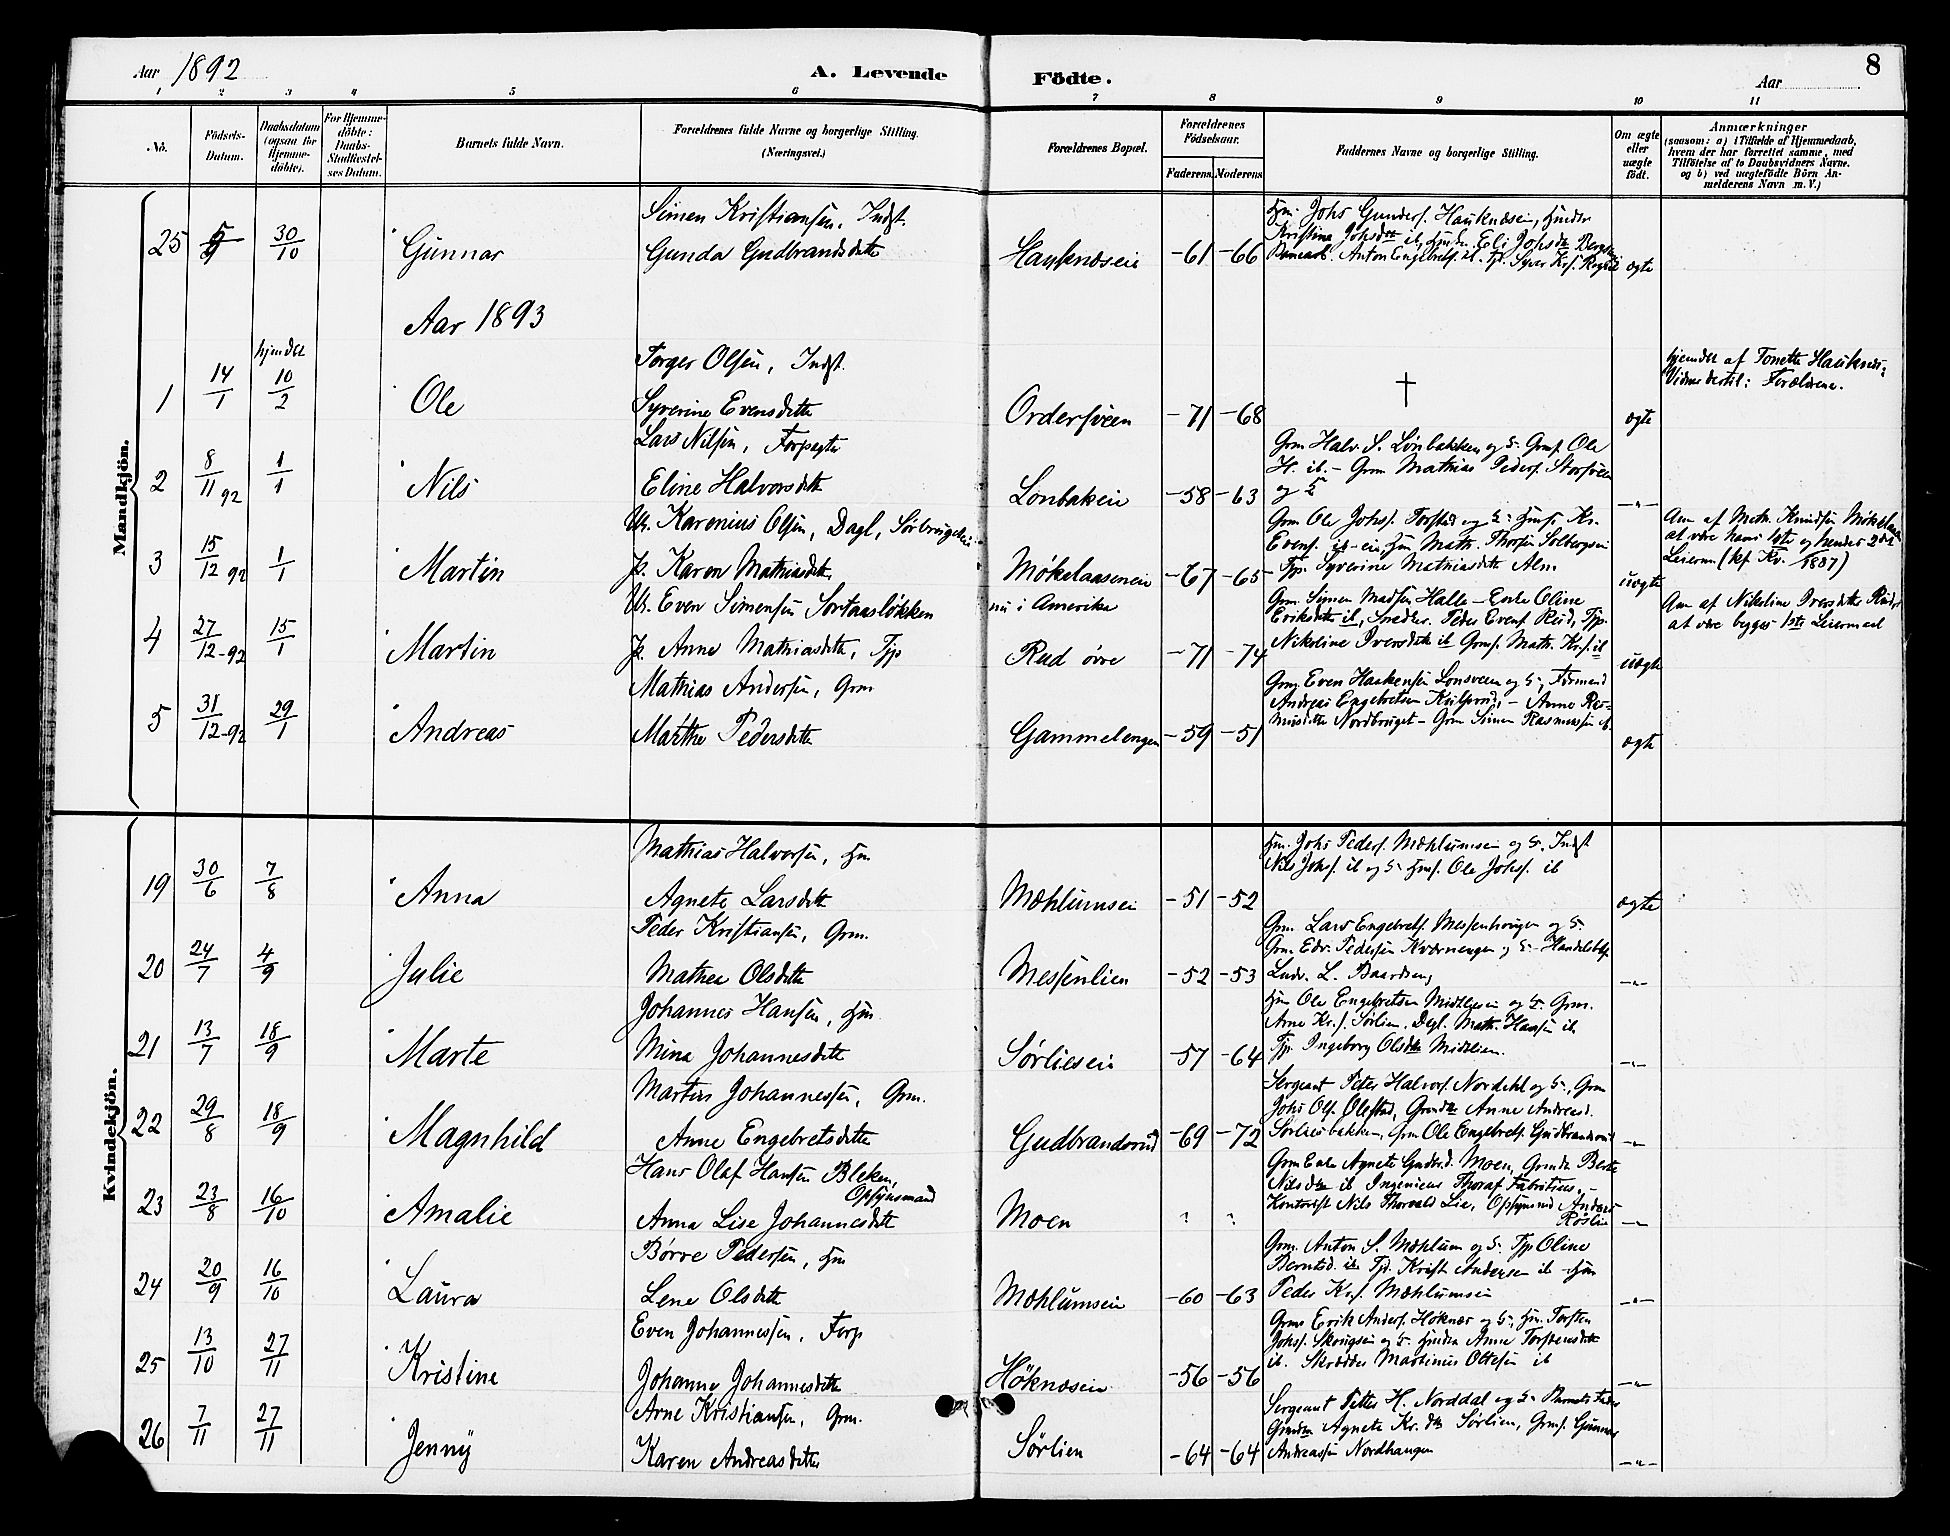 Aar 1892
A. Levende Födte.
Aar
8
1 2 3 4 5 6 7 8 9 10 11
No.
Födsels-Datum.
Daabsdatum (ogsaa for Hjemme-döbte).
For Hjemme-döbte: Daabs-Stadfæstel-ses Datum.
Barnets fulde Navn.
Forældrenes fulde Navne og borgerlige Stilling. (Næringsvei.)
Forældrenes Bopæl.
Forældrenes Födselsaar.
Faderens. Moderens.
Faddernes Navne og borgerlige Stilling.
Om ægte eller uægte födt.
Anmærkninger
(saasom: a) i Tilfælde af Hjemmedaab, hvem der har forrettet samme, med Tilföielse af to Daabsvidners Navne. og b) ved uægtefödte Börn An-melderens Navn m. V.)
Mandkjön.
25 5/9 30/10 Gunnar
Simen Kristiansen, Indst.
Gunda Gudbrandsdatte
Hauknæseie -61 -66
Hm. Johs Gunders. Hauknæseie,
Kristine Johsdtr ib,
ægte
Aar 1893
1 14/1 hjemdbt 10/2 Ole
Torger Olsen, Indst.
Syverine Evensdatte
Ordersveen -71 -68
†
ægte
hjemdbt af Tonette Hauknæs.
Vidner dertil: Forældrene.
2 8/11 92 1/1 Nils
Lars Nilsen, Forpagter
Eline Halvorsdatte
Lonbakeie -58 -63
Grm Halv. S. Lønbakken og H- Grms. Ole
H. ib - Grm Mathias Peders. Storsveen
-"-
3 15/12 92 1/1 Martin
Uk. Karenius Olsen, Dagl, Sørbrugeteie
P. Karen Mathiasdatte
Møkelaaseneie -67 -65
nu i Amerika
Grm Ole Johs. Torstad
Tjp. Syverine Mathiasdatte Alm
uægte
Anm af Math. Knudsen Møkelaasen
at være hans 1ste og hendes 2det
Leierm. (kf Kv. /1887)
4 27/12-92 15/1 Martin
Uk. Even Simensen Sortaasløkken
P. Anne Mathiasdatte, Tjp
Rud øvre -71 -74
Grm. Simen Madsen Halle - Enke Oline
Eriksdatte ib, Snedker. Peder Evens. Rud, Tjp.
Nikoline Iversdatte ib Grms. Math. Kr.s. ib
uægte
Anm af Nikoline Iversdatte Rud
at være begges 1ste Leiermaal
5 31/12-92 29/1 Andreas
Mathias Andersen, Grm
Marthe Pedersdatte
Gammelengen -59 -51
Grm. Even Haakensen Lonsveen
Andreas Engebretsen
Nordbruget - Grm Simen Rasmussen ib.
ægte
Kvindekjön.
19 30/6 7/8 Anna
Mathias Halvorsen, Hm
Agnete Larsdatte
Mæhlumseie -51 -52
Hm. Johs Peders. Mæhlumseie og H. Indst
Nils Johs. ib og H- Hms. Ole Johs. ib
ægte
20 24/7 4/9 Julie
Peder Kristiansen, Grm.
Mathea Olsdatte
Messenlien -52 -53
Grm. Lars Engebrets. Messenhougen og H-
Grm. Edv. Pedersen Kværnengen og H- Handelsbtj.
Ludv. L. Baardseng
-"-
21 13/7 18/9 Marte
Johannes Hansen, Hm
Mina Johannesdatte
Sørlieseie -57 -64
Hm Ole Engebretsen Midtlieeie og H. Grm.
Arne Kr.s. Sørlien. Dagl. Math. Hansen ib.
Tjp. Ingeborg Olsdtr Midtlien.
-"-
22 29/8 18/9 Magnhild
Martin Johannessen, Grm.
Anne Engebretsdatte
Gudbrandsrud -69 -72
Sergeant Peter Halvors. Norddal og H-, Grm
Johs Ols. Ølestad, Grmdtr Anne Andreasd.
Sørliesbakken, Grm Ole Engebrets. Gudbrandsrud
-"-
23 23/8 16/10 Amalie
Hans Olaf Hansen Bleken, Opsynsmand
Anna Lise Johannesdatte
Moen ? ?
Grm Enke Agnete Gudbr.d. Moen, Grmdtr Berte
Nilsdtr ib Ingeniør Thoraf Fabritius, -
Kontorist Nils Thorvald Lie, Opsynsmd Anders
Røslie
-"-
24 20/9 16/10 Laura
Børre Pedersen, Hm
Lene Olsdatte
Mæhlumseie -60 -63
Grm. Anton S. Mæhlum og H- Tjp Oline
Berntsd. ib Tjd. Krist Andersen ib - Hm
Peder Kr.s. Mæhlumseie
-"-
25 13/10 27/11 Kristine
Even Johannessen, Forp
Johanne Johannesdatte
Høknæseie -56 -56
Grms Erik Anders. Høknæs og H-, Hm. Torsten
Johs. Skougseie og H- Hmdtr Anne Torstensdatte
ib. Skrædder Martinus Ottesen ib
-"-
26 7/11 27/11 Jenny
Arne Kristiansen, Grm.
Karen Andreasdatte
Sørlien -64 -64
Sergeant Petter H. Norddal og H- Barnets Fader
Grmdtr Agnete Kr.dtr Sørlien, Grms. Gunnar
Andreassen Nordhaugen
-"-